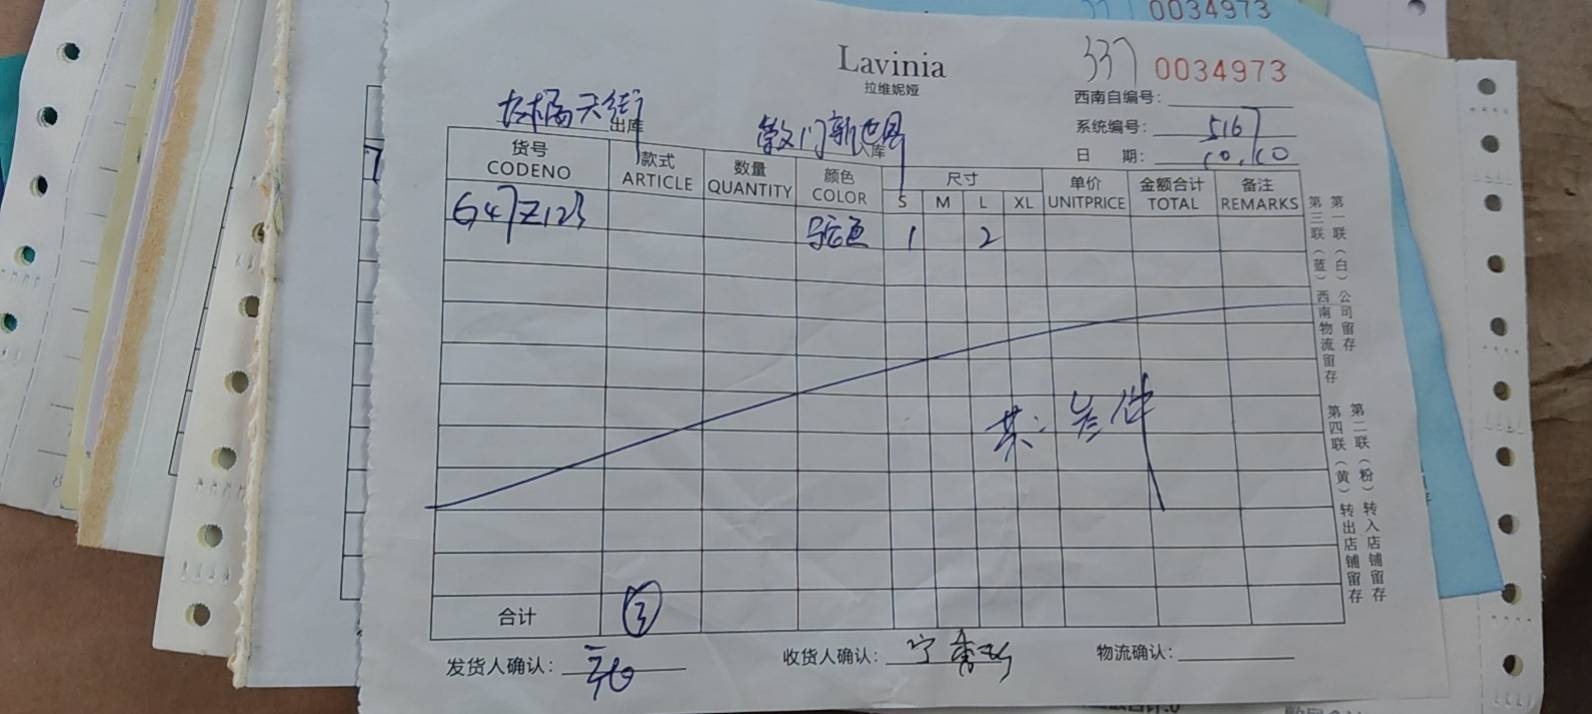 0034973
Lavinia
拉维妮娅
337 0034973
西南自编号:
系统编号: 5167
日 期: 10.10
天街 出库
新世界 入库
货号 CODENO 款式 ARTICLE 数量 QUANTITY 颜色 COLOR 尺寸 S M L XL 单价 UNITPRICE 金额合计 TOTAL 备注 REMARKS
G47Z123 驼色 1 2
共:叁件
合计 3
发货人确认:
收货人确认: 宁
物流确认:
第一联(白)公司留存
第三联(蓝)西南物流留存
第二联(粉)转入店铺留存
第四联(黄)转出店铺留存